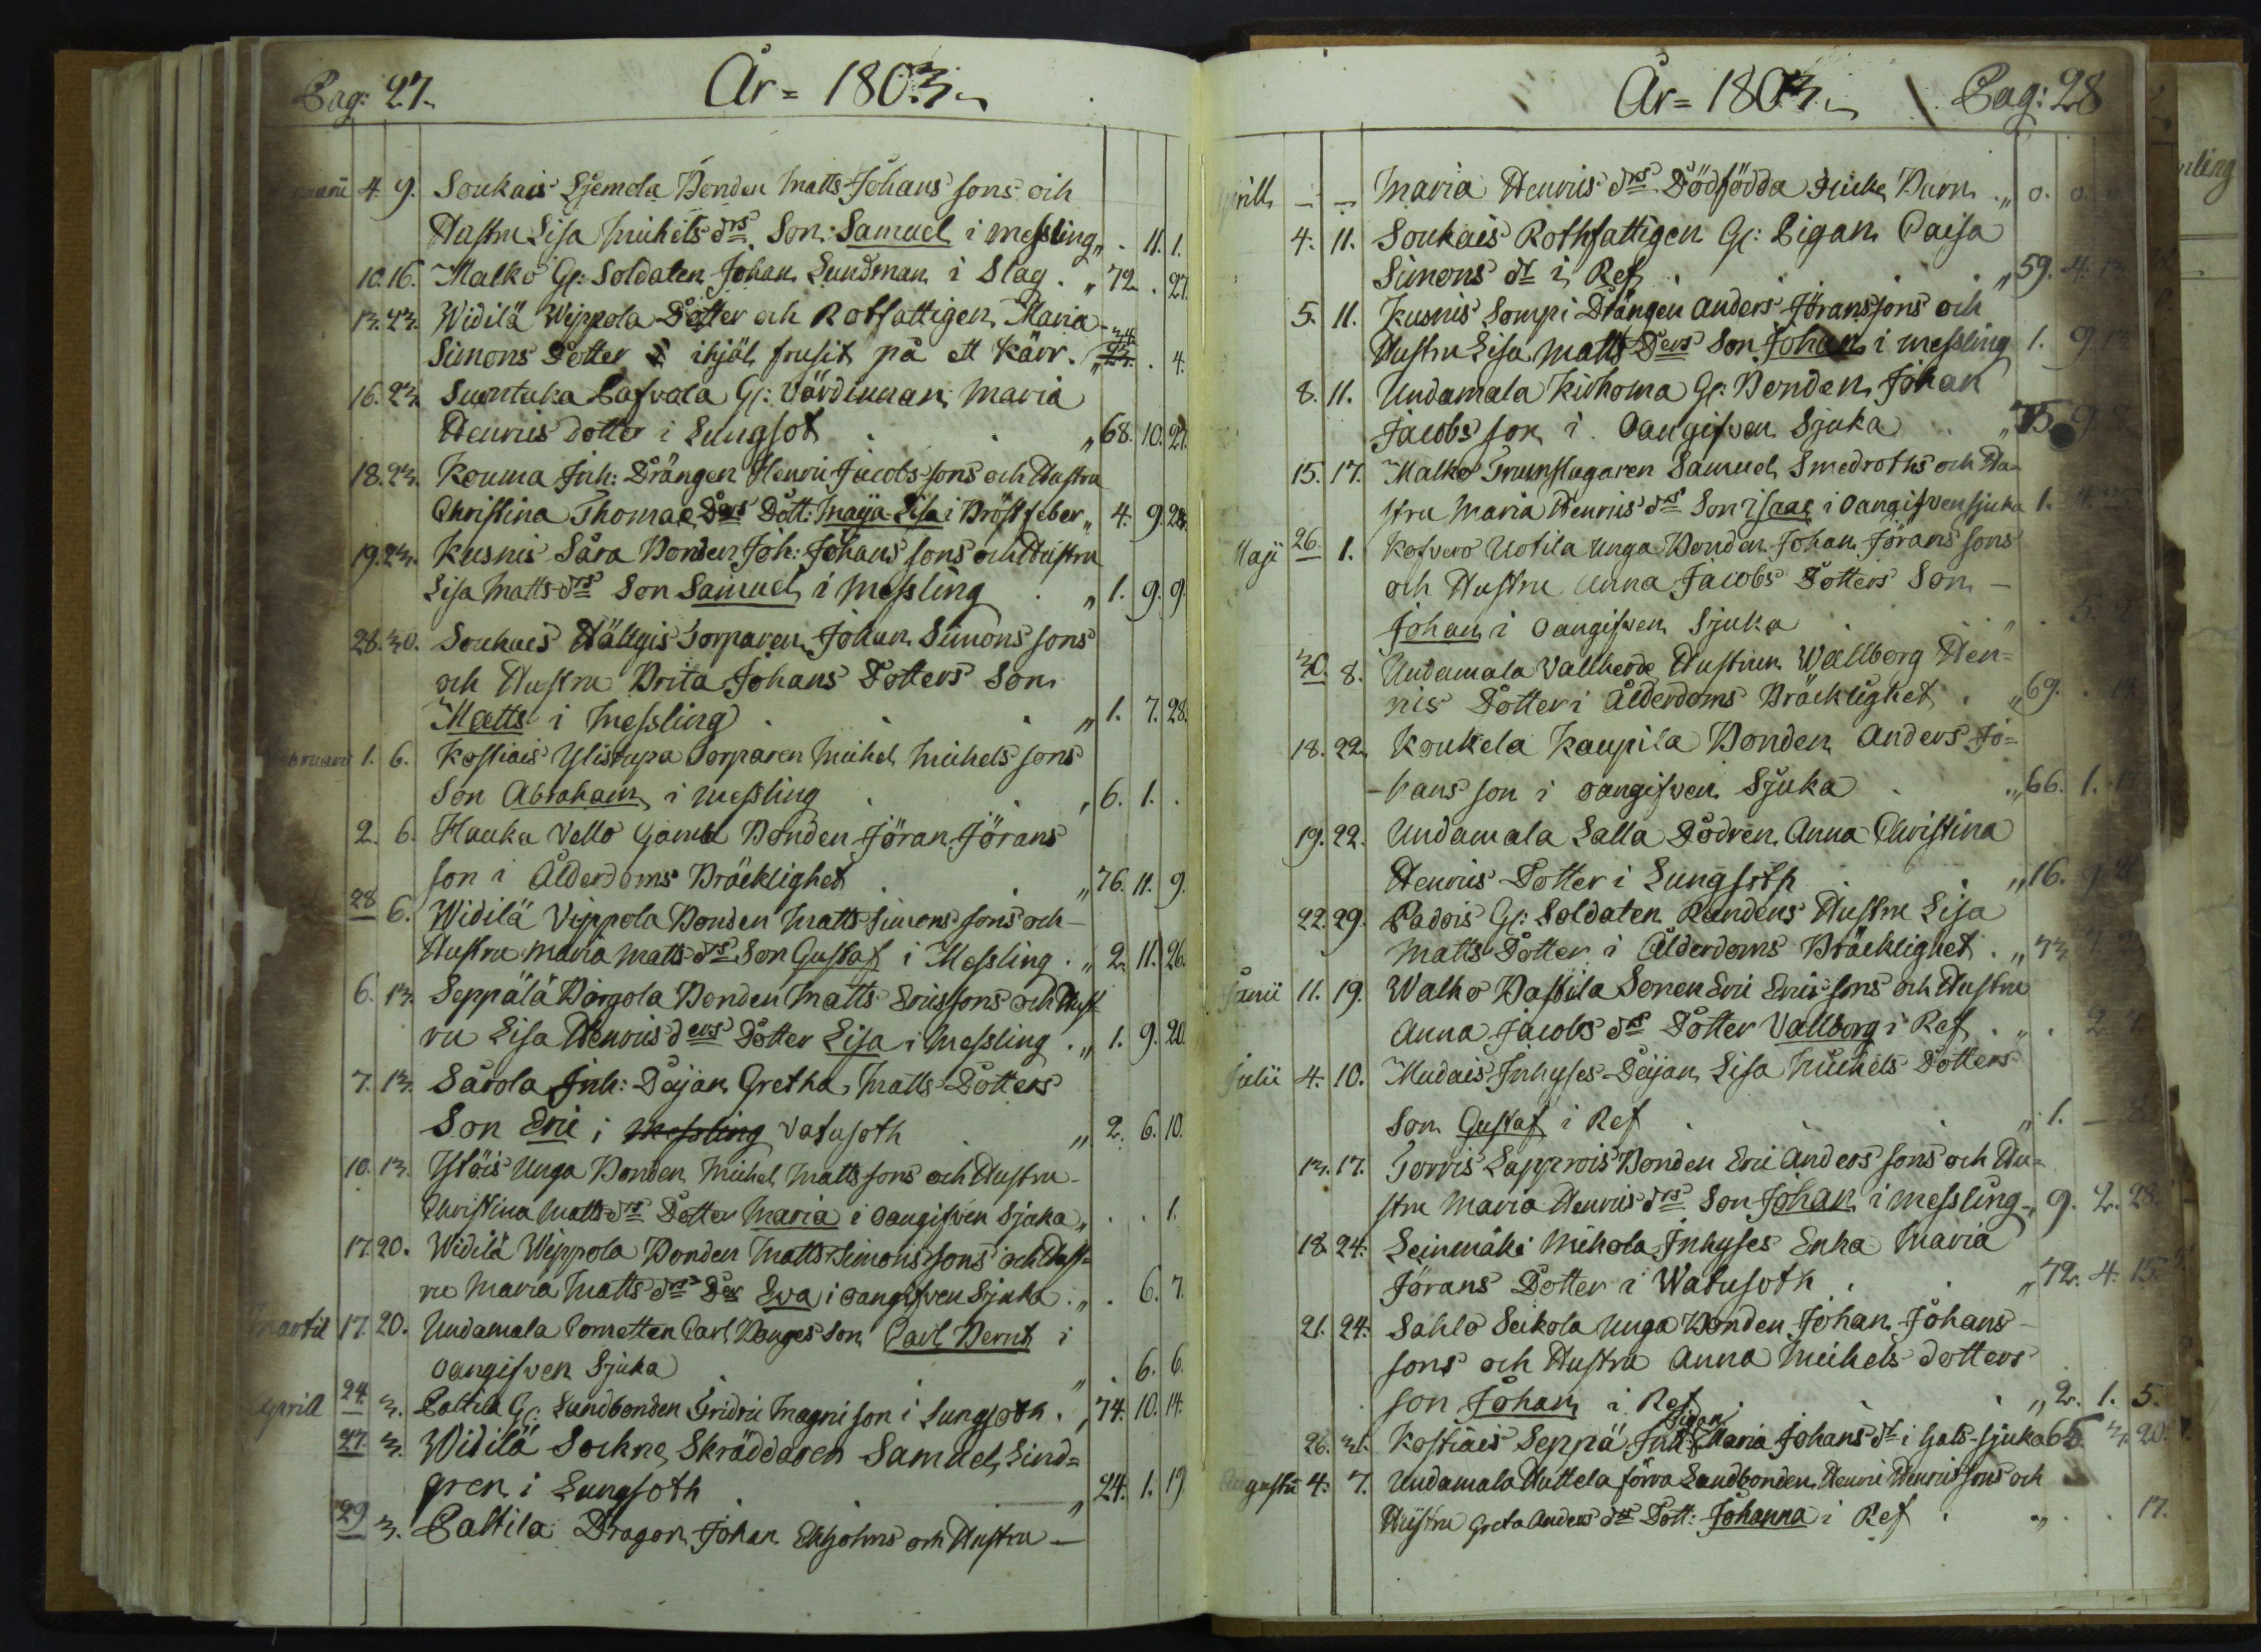 Pag: 27.
År = 1803.
4. 9. Soukais Sjemola Bonden Matts Johans sons och
Hustru Lisa Michels drs Son: Samuel i messling „ . 11. 1.
10. 16. Malko Gl: Soldaten Johan Lundman i Slag . „ 72 . 27.
13. 23. Widilä Wippola Dotter och Rotfattigen Maria
Simons Dotter ihjäl frusit på ett Kärr. „ 34. . 4.
16. 23. Suontaka Gl: Värdinnan Maria
Henrics dotter i Lungsot . . „ 68. 10. 27.
18. 23. Kouma Inh: Drängen Henric Jacobs sons och Hustru
Christina Thomae Drs Dott: Maija Lisa i Bröstfeber „ 4. 9. 28.
19. 23. Kusnis Såra Bonden Joh: Johans sons och Hustru
Lisa Matts drs Son Samuel i Messling . „ 1. 9. 9.
28. 30. Soukais Hällgis Torparen Johan Simons sons
och Hustru Brita Johans Dotters Son
Matts i Messling . . . „ 1. 7. 28.
Februarii 1. 6. Kostiais Ylistupa Torparen Michel Michels sons
Son Abraham i messling . . „ 6. 1. .
2. 6. Hauka Vello Gamla Bonden Jöran Jörans
son i Ålderdoms Bräcklighet . . „ 76. 11. 9.
28 6. Widilä Vippola Bonden Matts Simons sons och
Hustru Maria Matts drs Son Gustaf i Messling . „ 2. 11. 26.
6. 13. Seppälä Börgola Bonden Matts Erics sons och Hust
ru Lisa Henrics ders Dotter Lisa i Messling . „ 1. 9. 20.
7. 13. Sårola Inh: Pajan Gretha Matts Dotters
Son Eric i messling Vatusoth . „ 2. 6. 10.
10. 13. Ystöis Unga Bonden Michel Matts sons och Hustru
Christina Matts drs Dotter Maria i oangifven Sjuka „ . . 1.
17. 20. Widilä Wippola Bonden Matts Simons sons och Hust=
ru Maria Matts drs Der Eva i oangifven Sjuka . „ . 6. 7.
Martii 17. 20. Undamala Cornetten Carl Bonges Son Carl Bernt i
oangifven Sjuka . . „ . 6. 6.
Aprill 24. 3. Paltila Gl: Landbonden Fridric Magni son i Lungsoth . „ 74. 10. 14.
27. 3. Widilä Sockne Skräddaren Samuel Lind=
gren i Lungsoth . . „ 24. 1. 19
29 3. Paltila Dragon Johan Ekholms och Hustru —
År = 1803.
Pag: 28
Aprill — — Maria Henrics drs Dödfödda flicke Barn . „ 0. 0.
4. 11. Soukais Rothfattigen Gl: Pigan Caisa
Simons dr i Ref . . . „ 59. 4. 13
5. 11. Kusnis Sompi Drängen Anders Jöranssons och
Hustru Lisa Matts Ders Son Johan i messling 1. 9
8. 11. Undamala Kirhoma Gl: Bonden Johan
Jacobs son i Oangifven Sjuka . „ 75 9
15. 17. Malko Trumslagaren Samuel Smedroths och Hu=
stru Maria Henrics drs Son Isaac i oangifven sjuka 1. 4.
Maji 26. 1. Kofvero Uotila Unga Bonden Johan Jörans sons
och Hustru Anna Jacobs Dotters Son —
Johan i oangifven Sjuka . . „ . 5.
30. 8. Undamala Vallherde Hustrun Wallborg Hen=
rics Dotter i Ålderdoms Bräcklighet . „ 69. . 14
18. 22. Koukela Kaupila Bonden Anders Jo=
hans son i oangifven Sjuka . „ 66. 1.
19. 22. Undamala Salla Dodren Anna Christina
Henrics Dotter i Lungsoth . „ 16. 9
22. 29. Padois Gl: Soldaten Randens Hustru Lisa
Matts Dotter i Ålderdoms Bräcklighet . „ 73.
Junii 11. 19. Walko Passila Sonen Eric Erics sons och Hustru
Anna Jacobs drs Dotter Vallborg i Ref . „ . 2.
Julii 4. 10. Mudais Inhyses Pajan Lisa Michels Dotters
Son Gustaf i Ref . . „ 1. —
13. 17. Torvis Lapprois Bonden Eric Anders sons och Hu=
stru Maria Henrics drs Son Johan i messling „ 9. 2. 28.
18. 24. Leinmäki Mickola Inhyses Enka Maria
Jörans Dotter i Watusoth . . „ 72. 4. 15.
21. 24. Sahlo Seikola Unga Bonden Johan Johans
sons och Hustru Anna Michels dotters
son Johan i Ref . . „ 2. 1. 5.
26. 31. Kostiais Seppä Inh: Pigan Maria Johans dr i Hals-sjuka 65. 3. 20.
Augusti 4. 7. Undamala Huttela förra Landbonden Henric Henrics sons och
Hustru Greta Anders drs Dott: Johanna i Ref . „ . . 17.